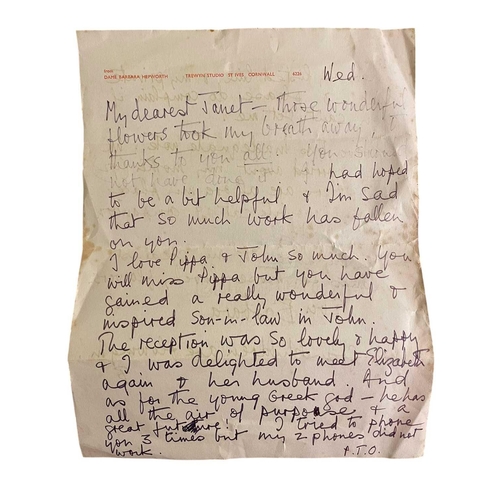 from
DAME BARBARA HEPWORTH TREWYN STUDIO ST IVES CORNWALL 6226
Wed.
My dearest Janet – Those wonderful
flowers took my breath away,
thanks to you all. You should
not have had hoped
to be a bit helpful & I'm sad
that so much work has fallen
on you.
I love Pippa & John so much. You
will miss Pippa but you have
gained a really wonderful &
inspired Son-in-law in John.
The reception was so lovely & happy
& I was delighted to meet Elizabeth
again & her husband. And
as for the young Greek god – he has
all the air of purpose & a
great future! I tried to phone
you 3 times but my 2 phones did not
work. P.T.O.